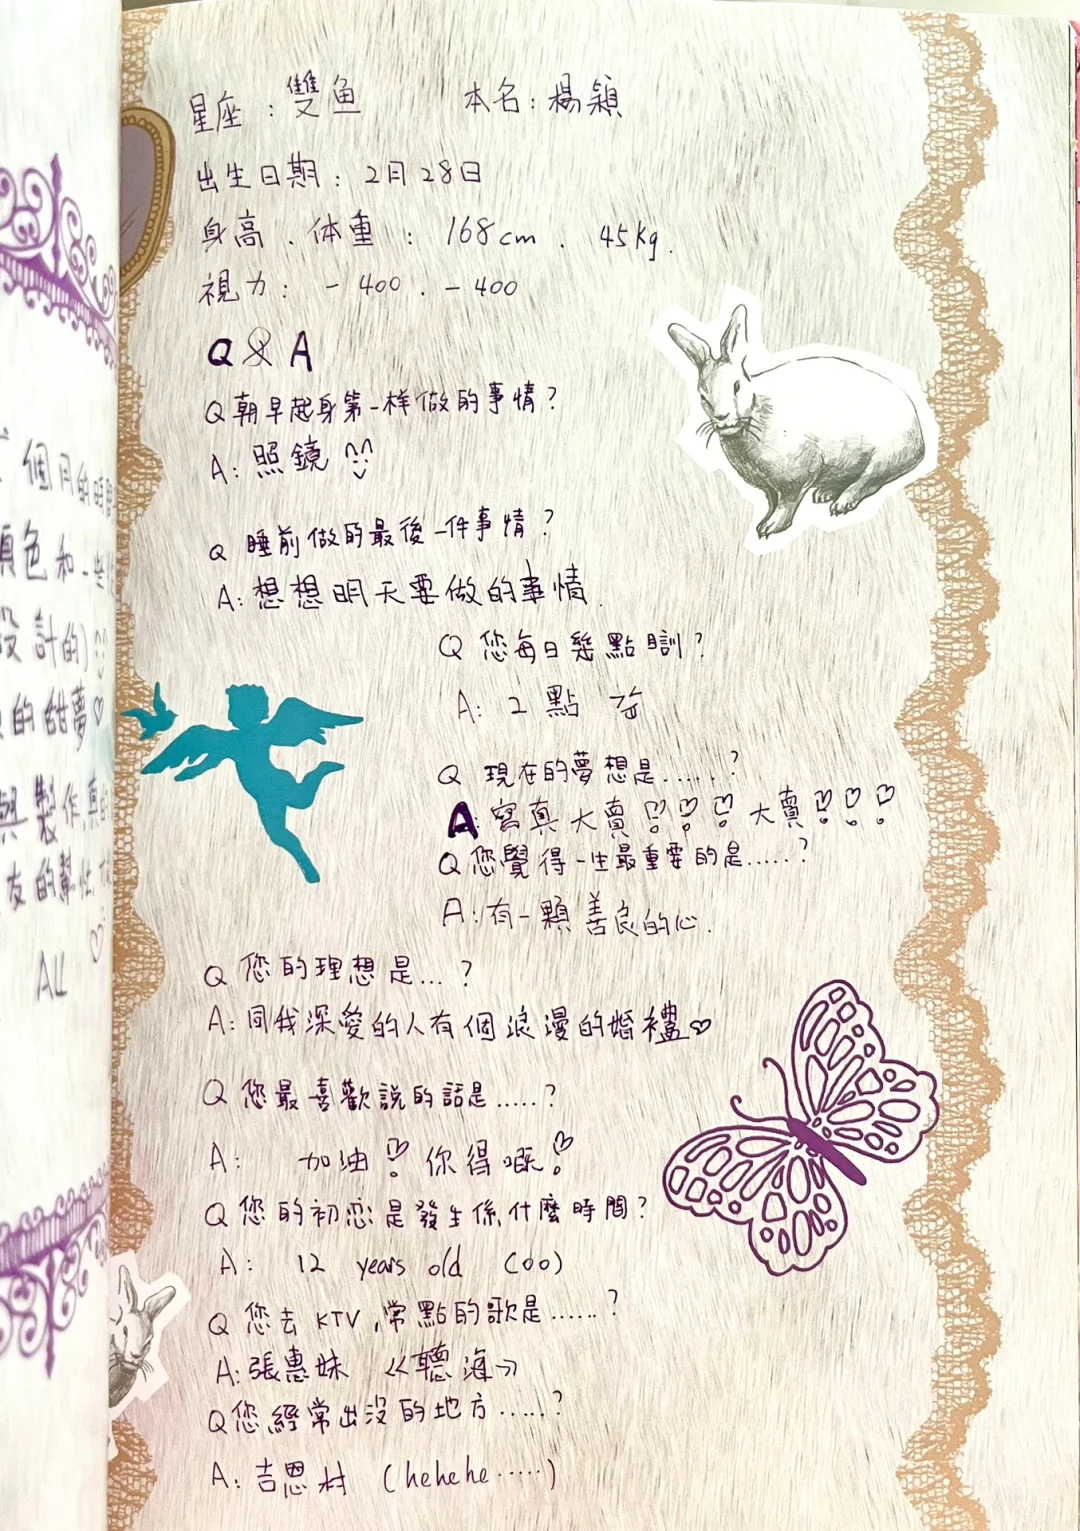 星座：雙魚　本名：楊穎
出生日期：2月28日
身高、体重：168cm、45kg.
視力：-400、-400
Q & A
Q 朝早起身第一样做的事情？
A：照鏡
Q 睡前做的最後一件事情？
A：想想明天要做的事情.
Q 您每日幾點瞓？
A：2點
Q 現在的夢想是.....？
A：寫真大賣！！！大賣！！！
Q 您覺得一生最重要的是.....？
A：有一顆善良的心.
Q 您的理想是...？
A：同我深愛的人有個浪漫的婚禮♡
Q 您最喜歡說的話是.....？
A：加油！你得嘅！
Q 您的初恋是發生係什麼時間？
A：12 years old (oo)
Q 您去KTV,常點的歌是......？
A：張惠妹《聽海》
Q 您經常出沒的地方.....？
A：吉恩村 (hehehe.....)
個月的時間
色和一些
設計的)
的甜夢♡
與製作,真的
友的幫忙
ALL